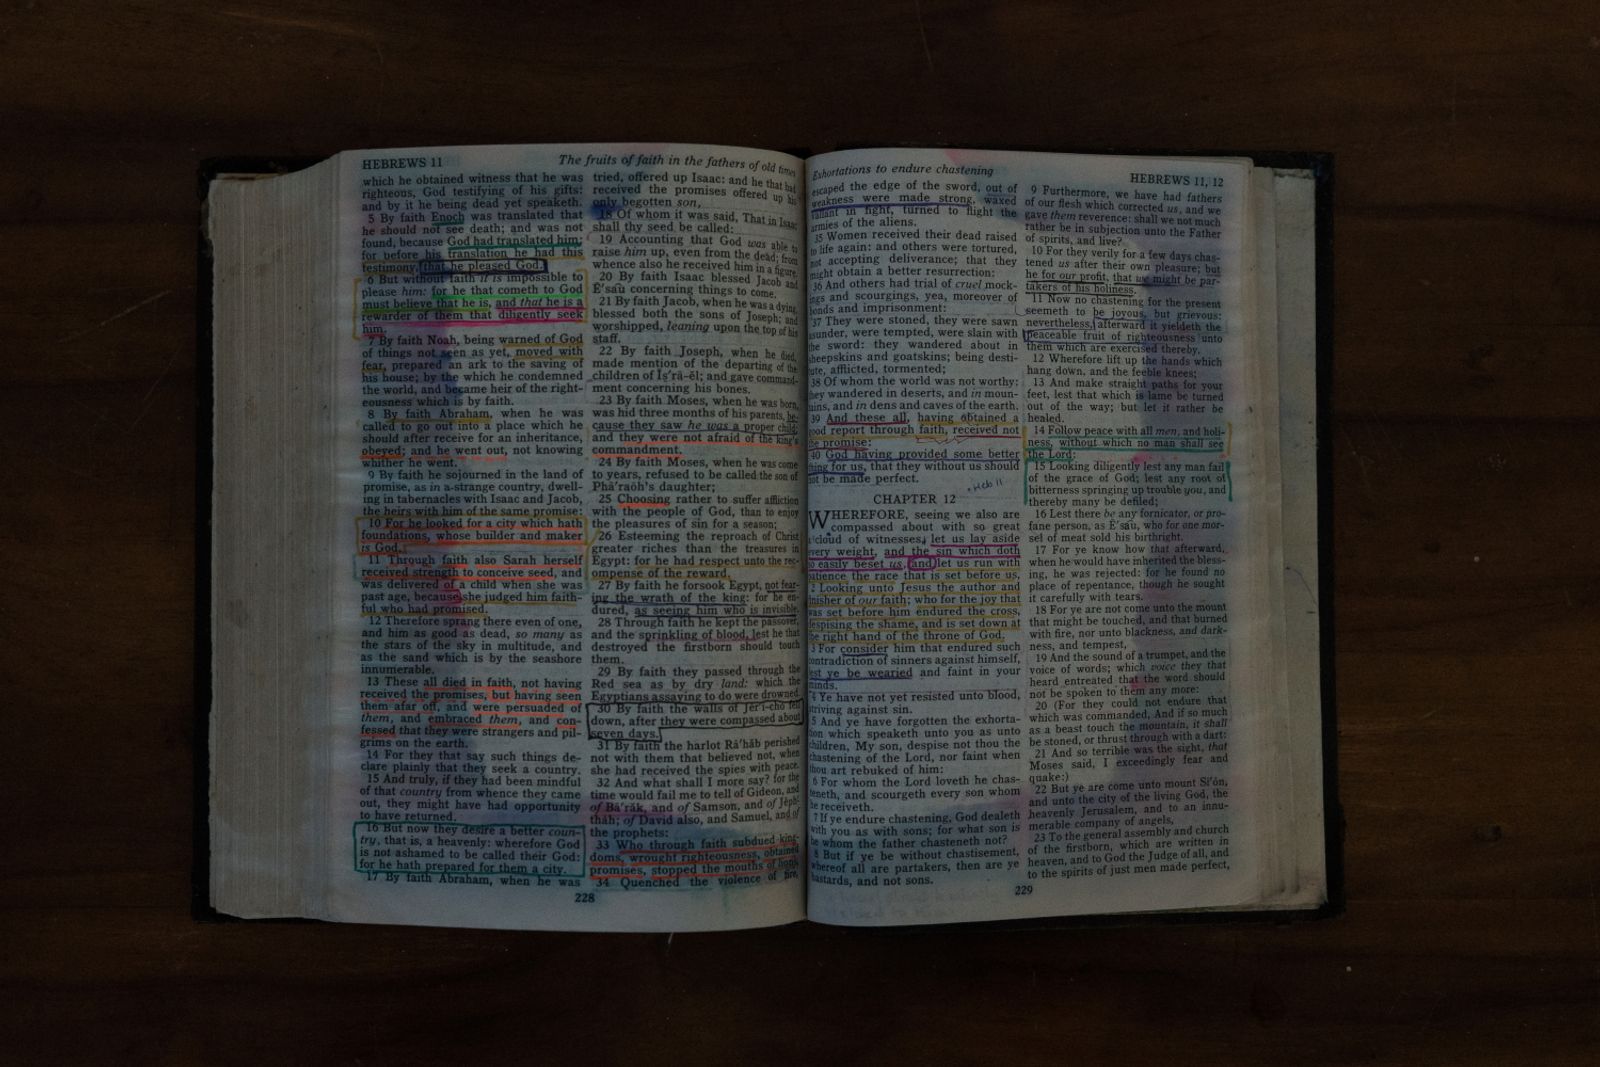 HEBREWS 11
The fruits of faith in the fathers of old times
which he obtained witness that he was
righteous, God testifying of his gifts:
and by it he being dead yet speaketh.
5 By faith Enoch was translated that
he should not see death; and was not
found, because God had translated him:
for before his translation he had this
testimony, that he pleased God.
6 But without faith it is impossible to
please him: for he that cometh to God
must believe that he is, and that he is a
rewarder of them that diligently seek
him.
7 By faith Noah, being warned of God
of things not seen as yet, moved with
fear, prepared an ark to the saving of
his house; by the which he condemned
the world, and became heir of the right-
eousness which is by faith.
8 By faith Abraham, when he was
called to go out into a place which he
should after receive for an inheritance,
obeyed; and he went out, not knowing
whither he went.
9 By faith he sojourned in the land of
promise, as in a strange country, dwell-
ing in tabernacles with Isaac and Jacob,
the heirs with him of the same promise:
10 For he looked for a city which hath
foundations, whose builder and maker
is God.
11 Through faith also Sarah herself
received strength to conceive seed, and
was delivered of a child when she was
past age, because she judged him faith-
ful who had promised.
12 Therefore sprang there even of one,
and him as good as dead, so many as
the stars of the sky in multitude, and
as the sand which is by the seashore
innumerable.
13 These all died in faith, not having
received the promises, but having seen
them afar off, and were persuaded of
them, and embraced them, and con-
fessed that they were strangers and pil-
grims on the earth.
14 For they that say such things de-
clare plainly that they seek a country.
15 And truly, if they had been mindful
of that country from whence they came
out, they might have had opportunity
to have returned.
16 But now they desire a better coun-
try, that is, a heavenly: wherefore God
is not ashamed to be called their God:
for he hath prepared for them a city.
17 By faith Abraham, when he was
tried, offered up Isaac: and he that had
received the promises offered up his
only begotten son,
18 Of whom it was said, That in Isaac
shall thy seed be called:
19 Accounting that God was able to
raise him up, even from the dead; from
whence also he received him in a figure.
20 By faith Isaac blessed Jacob and
Ē'saū concerning things to come.
21 By faith Jacob, when he was a dying,
blessed both the sons of Joseph; and
worshipped, leaning upon the top of his
staff.
22 By faith Joseph, when he died,
made mention of the departing of the
children of Iṣ'rā-ĕl; and gave command-
ment concerning his bones.
23 By faith Moses, when he was born,
was hid three months of his parents, be-
cause they saw he was a proper child;
and they were not afraid of the king's
commandment.
24 By faith Moses, when he was come
to years, refused to be called the son of
Phā'raōh's daughter;
25 Choosing rather to suffer affliction
with the people of God, than to enjoy
the pleasures of sin for a season;
26 Esteeming the reproach of Christ
greater riches than the treasures in
Egypt: for he had respect unto the rec-
ompense of the reward.
27 By faith he forsook Egypt, not fear-
ing the wrath of the king: for he en-
dured, as seeing him who is invisible.
28 Through faith he kept the passover,
and the sprinkling of blood, lest he that
destroyed the firstborn should touch
them.
29 By faith they passed through the
Red sea as by dry land: which the
Egyptians assaying to do were drowned.
30 By faith the walls of Jĕr'ĭ-chō fell
down, after they were compassed about
seven days.
31 By faith the harlot Rā'hăb perished
not with them that believed not, when
she had received the spies with peace.
32 And what shall I more say? for the
time would fail me to tell of Gideon, and
of Bā'răk, and of Samson, and of Jĕph-
thăh; of David also, and Samuel, and of
the prophets:
33 Who through faith subdued king-
doms, wrought righteousness, obtained
promises, stopped the mouths of lions,
34 Quenched the violence of fire,
228
Exhortations to endure chastening
HEBREWS 11, 12
escaped the edge of the sword, out of
weakness were made strong, waxed
valiant in fight, turned to flight the
armies of the aliens.
35 Women received their dead raised
to life again: and others were tortured,
not accepting deliverance; that they
might obtain a better resurrection:
36 And others had trial of cruel mock-
ings and scourgings, yea, moreover of
bonds and imprisonment:
37 They were stoned, they were sawn
asunder, were tempted, were slain with
the sword: they wandered about in
sheepskins and goatskins; being desti-
tute, afflicted, tormented;
38 Of whom the world was not worthy:
they wandered in deserts, and in moun-
tains, and in dens and caves of the earth.
39 And these all, having obtained a
good report through faith, received not
the promise:
40 God having provided some better
thing for us, that they without us should
not be made perfect.
• Heb 11
CHAPTER 12
WHEREFORE, seeing we also are
compassed about with so great
a cloud of witnesses, let us lay aside
every weight, and the sin which doth
so easily beset us, and let us run with
patience the race that is set before us,
2 Looking unto Jesus the author and
finisher of our faith; who for the joy that
was set before him endured the cross,
despising the shame, and is set down at
the right hand of the throne of God.
3 For consider him that endured such
contradiction of sinners against himself,
lest ye be wearied and faint in your
minds.
4 Ye have not yet resisted unto blood,
striving against sin.
5 And ye have forgotten the exhorta-
tion which speaketh unto you as unto
children, My son, despise not thou the
chastening of the Lord, nor faint when
thou art rebuked of him:
6 For whom the Lord loveth he chas-
teneth, and scourgeth every son whom
he receiveth.
7 If ye endure chastening, God dealeth
with you as with sons; for what son is
he whom the father chasteneth not?
8 But if ye be without chastisement,
whereof all are partakers, then are ye
bastards, and not sons.
9 Furthermore, we have had fathers
of our flesh which corrected us, and we
gave them reverence: shall we not much
rather be in subjection unto the Father
of spirits, and live?
10 For they verily for a few days chas-
tened us after their own pleasure; but
he for our profit, that we might be par-
takers of his holiness.
11 Now no chastening for the present
seemeth to be joyous, but grievous:
nevertheless, afterward it yieldeth the
peaceable fruit of righteousness unto
them which are exercised thereby.
12 Wherefore lift up the hands which
hang down, and the feeble knees;
13 And make straight paths for your
feet, lest that which is lame be turned
out of the way; but let it rather be
healed.
14 Follow peace with all men, and holi-
ness, without which no man shall see
the Lord:
15 Looking diligently lest any man fail
of the grace of God; lest any root of
bitterness springing up trouble you, and
thereby many be defiled;
16 Lest there be any fornicator, or pro-
fane person, as Ē'saū, who for one mor-
sel of meat sold his birthright.
17 For ye know how that afterward,
when he would have inherited the bless-
ing, he was rejected: for he found no
place of repentance, though he sought
it carefully with tears.
18 For ye are not come unto the mount
that might be touched, and that burned
with fire, nor unto blackness, and dark-
ness, and tempest,
19 And the sound of a trumpet, and the
voice of words; which voice they that
heard entreated that the word should
not be spoken to them any more:
20 (For they could not endure that
which was commanded, And if so much
as a beast touch the mountain, it shall
be stoned, or thrust through with a dart:
21 And so terrible was the sight, that
Moses said, I exceedingly fear and
quake:)
22 But ye are come unto mount Sī'ŏn,
and unto the city of the living God, the
heavenly Jerusalem, and to an innu-
merable company of angels,
23 To the general assembly and church
of the firstborn, which are written in
heaven, and to God the Judge of all, and
to the spirits of just men made perfect,
229